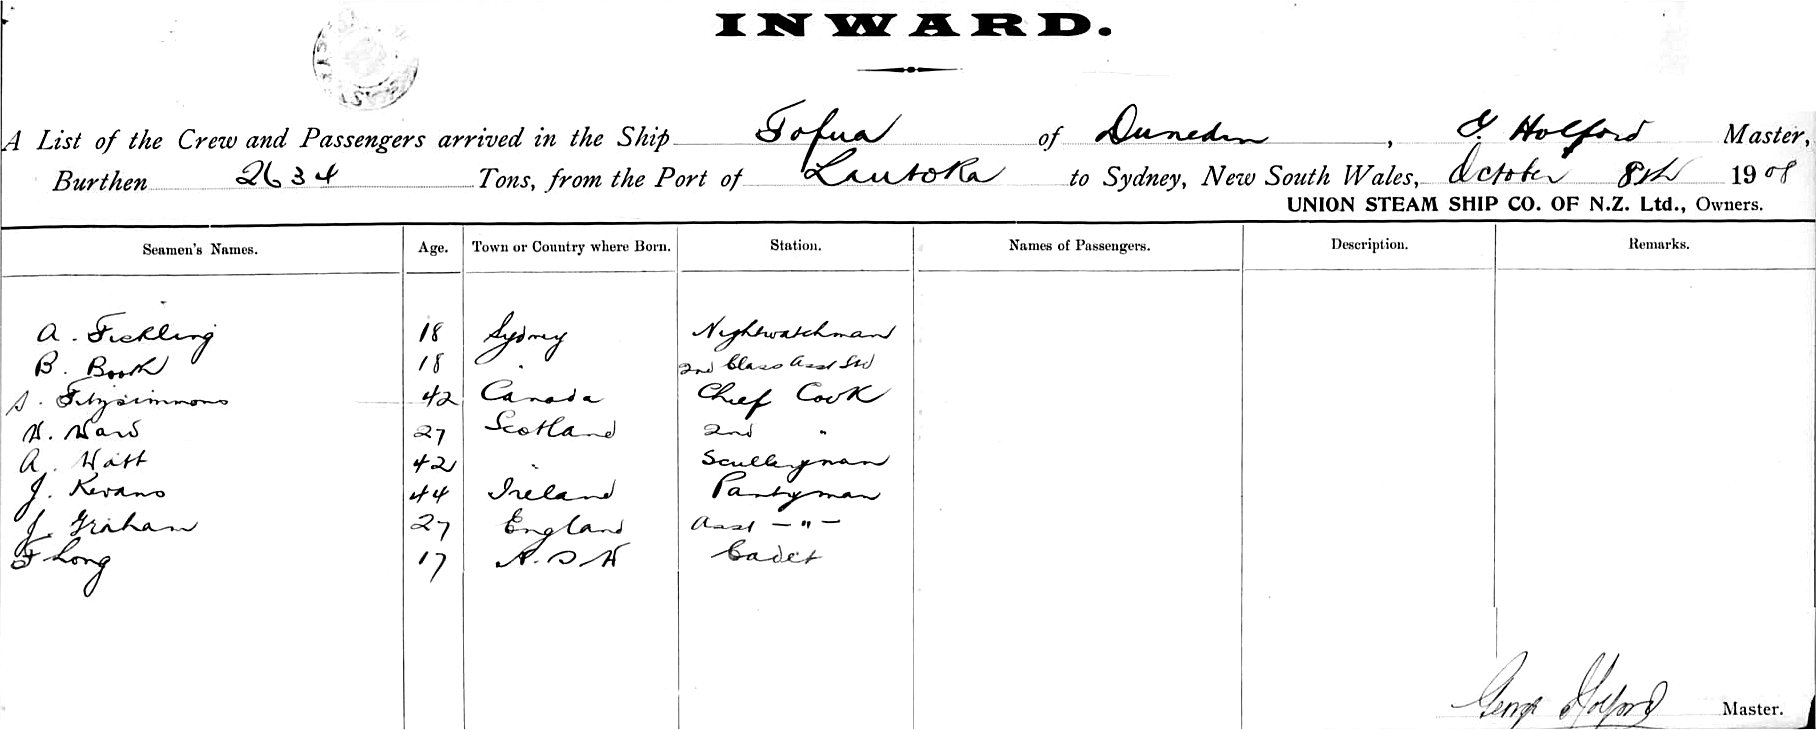 INWARD.
A List of the Crew and Passengers arrived in the Ship Tofua of Dunedin, G. Holford Master,
Burthen 2634 Tons, from the Port of Lautoka to Sydney, New South Wales, October 8th 1908
UNION STEAM SHIP CO. OF N.Z. Ltd., Owners.
Seamen's Names. Age. Town or Country where Born. Station. Names of Passengers. Description. Remarks.
A. Fickling 18 Sydney Nightwatchman
B. Booth 18 " 2nd Class Asst Std
S. Fitzsimmons 42 Canada Chief Cook
W. Ward 27 Scotland 2nd "
A. Watt 42 " Sculleryman
J. Kevans 44 Ireland Pantryman
J. Graham 27 England Asst — " —
F Long 17 N.S.W Cadet
George Holford Master.